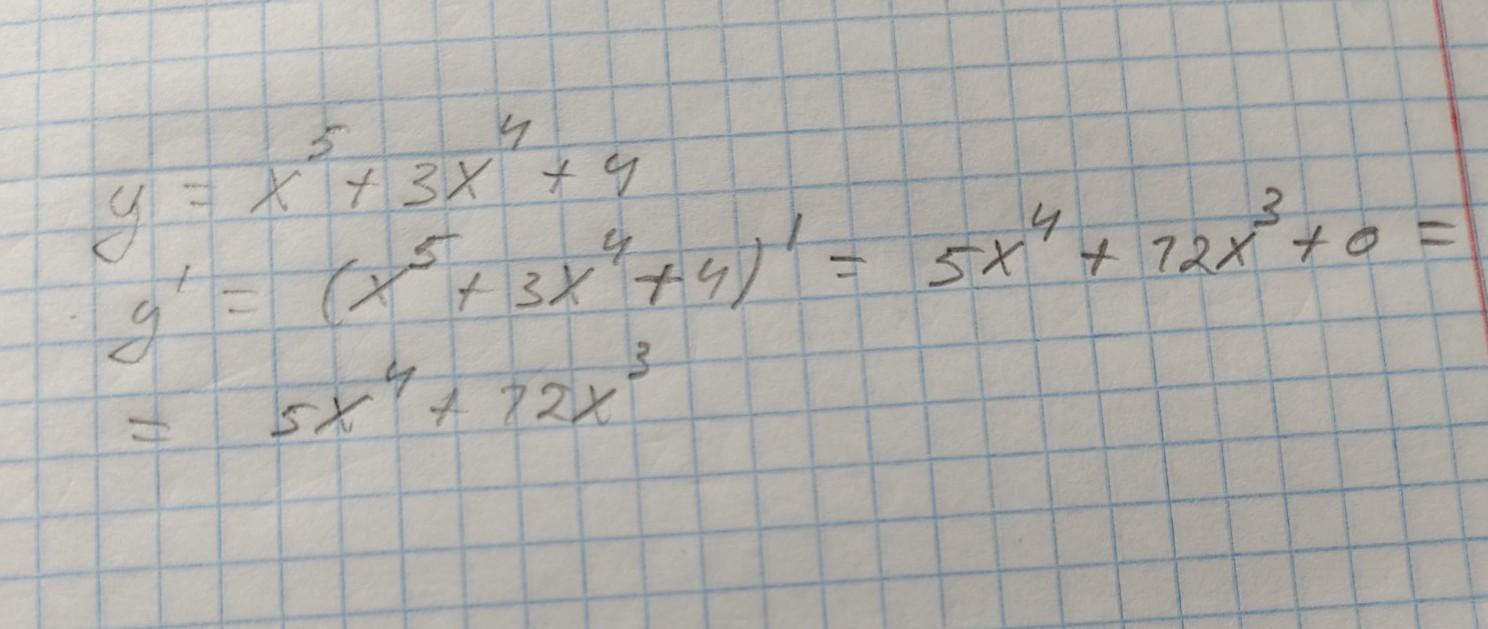 y = x⁵ + 3x⁴ + 4
y' = (x⁵ + 3x⁴ + 4)' = 5x⁴ + 12x³ + 0 =
= 5x⁴ + 12x³